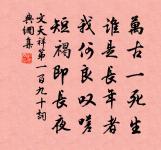 萬古一死生
誰是長年者
我何良叹嗟
短褐即長夜
文天祥第一百九十詞
集